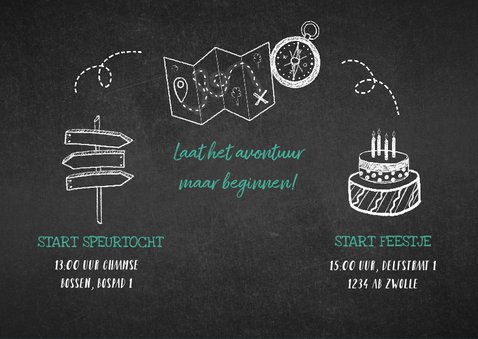 Laat het avontuur
maar beginnen!
START SPEURTOCHT
13:00 UUR CHAAMSE
BOSSEN, BOSPAD 1
START FEESTJE
15:00 UUR, DELFSTRAAT 1
1234 AB ZWOLLE